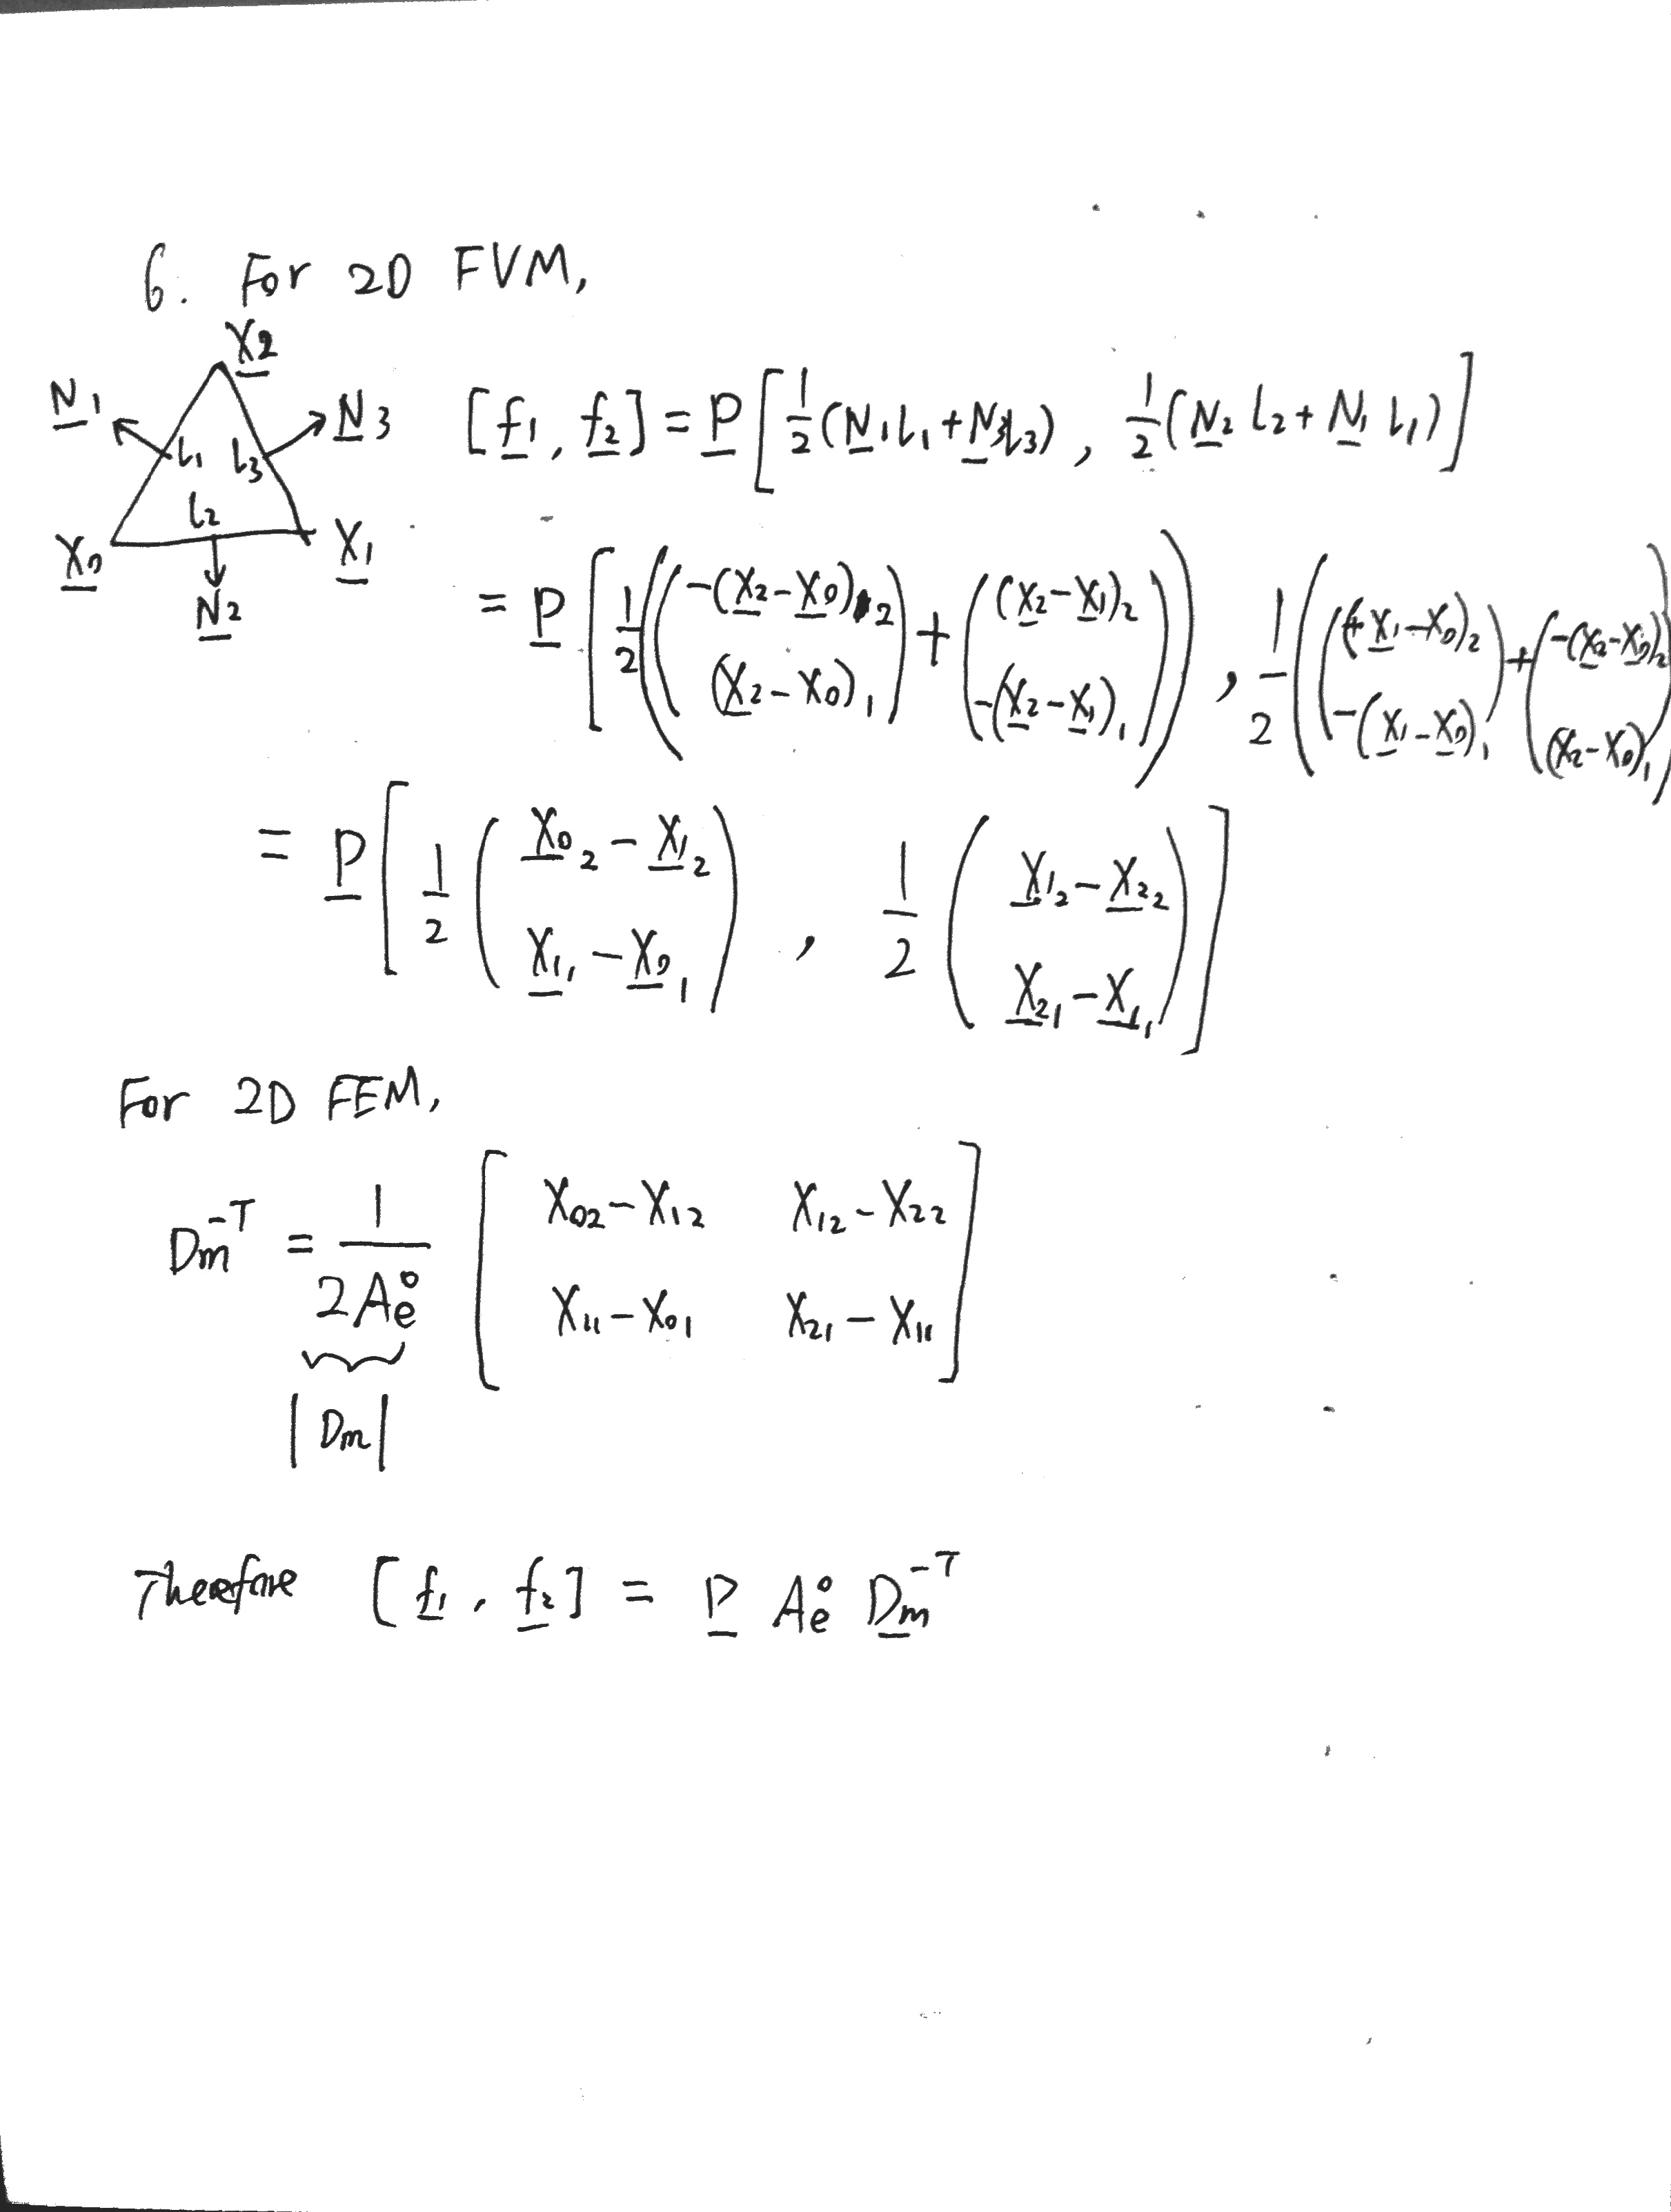 6. For 2D FVM,
X2
N1
N3
l1
l3
l2
X0
X1
N2
[f1, f2] = P [ 1/2 (N1 l1 + N3 l3), 1/2 (N2 l2 + N1 l1) ]
= P [ 1/2 ( ( -(X2-X0)2 ; (X2-X0)1 ) + ( (X2-X1)2 ; -(X2-X1)1 ) ), 1/2 ( ( (X1-X0)2 ; -(X1-X0)1 ) + ( -(X2-X0)2 ; (X2-X0)1 ) )
= P [ 1/2 ( X0 2 - X1 2 ; X1 1 - X0 1 ), 1/2 ( X1 2 - X2 2 ; X2 1 - X1 1 ) ]
For 2D FEM,
Dm^-T = 1/(2Ae°) [ X02-X12 X12-X22 ; X11-X01 X21-X11 ]
|Dm|
Therefore [f1, f2] = P Ae° Dm^-T